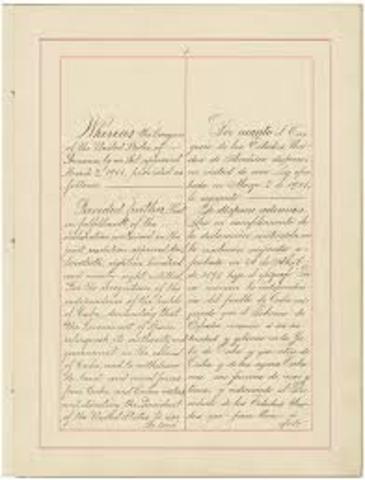 Whereas the Congress
of the United States of
America, by an Act approved
March 2, 1901, provided as
follows:
Provided further, That
in fulfillment of the
declaration contained in the
joint resolution approved April
twentieth, eighteen hundred
and ninety-eight, entitled
For the recognition of the
independence of the people
of Cuba, demanding that
the Government of Spain
relinquish its authority and
government in the island
of Cuba, and to withdraw
its land and naval forces
from Cuba and Cuban waters,
and directing the President
of the United States to use
the land
Por cuanto el Con-
greso de los Estados Uni-
dos de América dispuso,
en virtud de una Ley apro-
bada en Marzo 2 de 1901,
lo siguiente:
Se dispone además,
Que en cumplimiento de
la declaración contenida en
la resolución conjunta a-
probada en 20 de Abril
de 1898
la independen-
cia del pueblo de Cuba
que el Gobierno de
España renuncie a su au-
toridad y gobierno en la Is-
la de Cuba y que retire de
Cuba y de las aguas Cuba-
nas sus fuerzas de mar y
tierra y ordenando al Pre-
sidente de los Estados Uni-
dos que